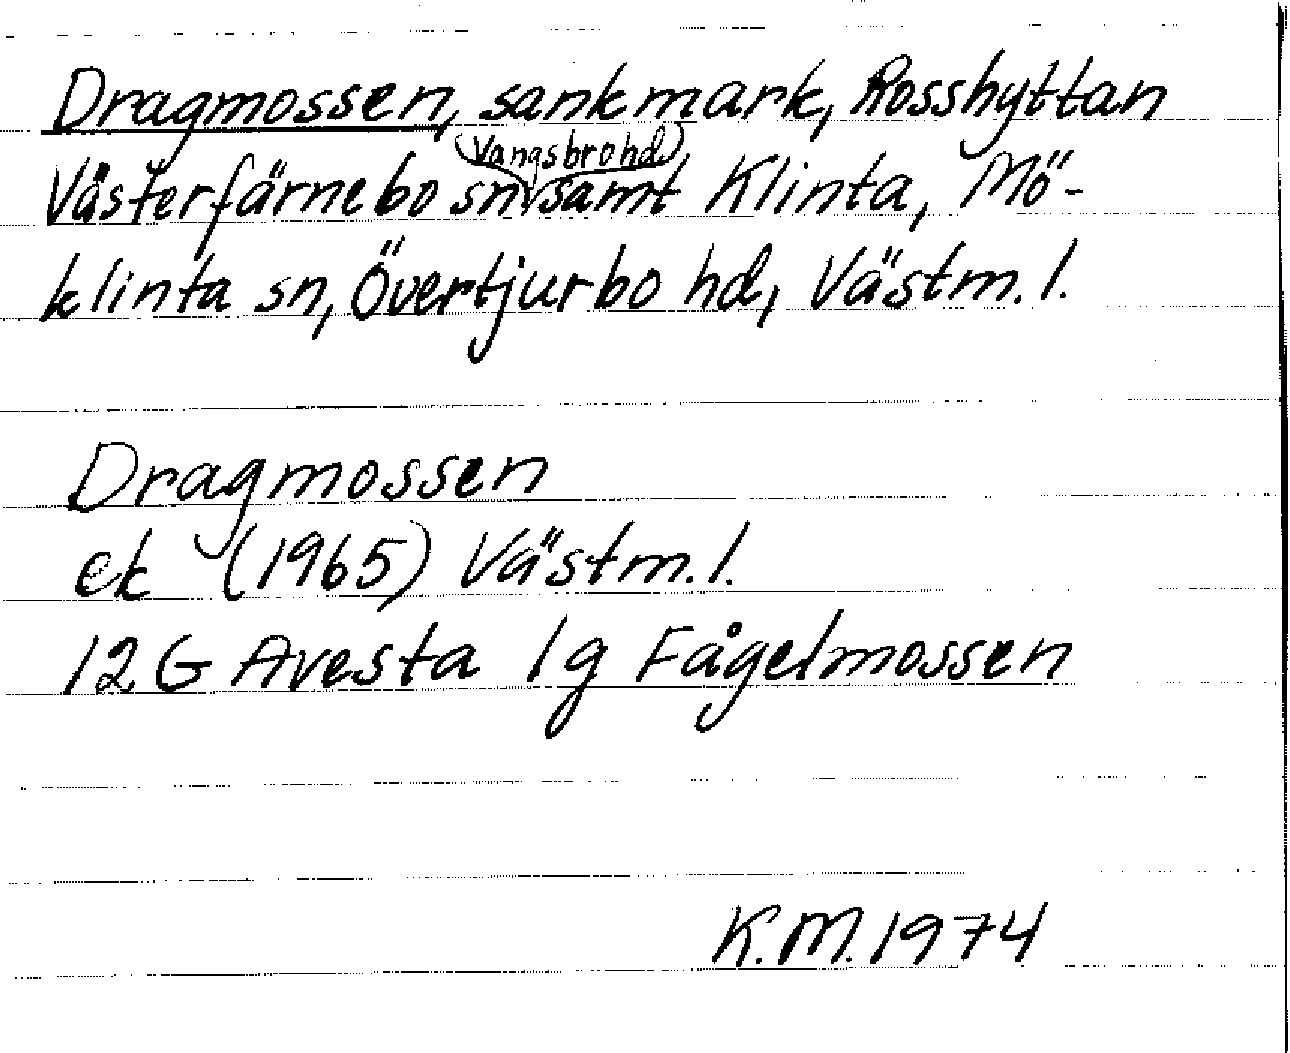 Dragmossen, sankmark, Rosshyttan
Vangsbro hd
Västerfärnebo sn samt Klinta, Mö-
klinta sn, Övertjurbo hd, Västm. l.
Dragmossen
ek (1965) Västm. l.
12 G Avesta 1g Fågelmossen
K.M. 1974